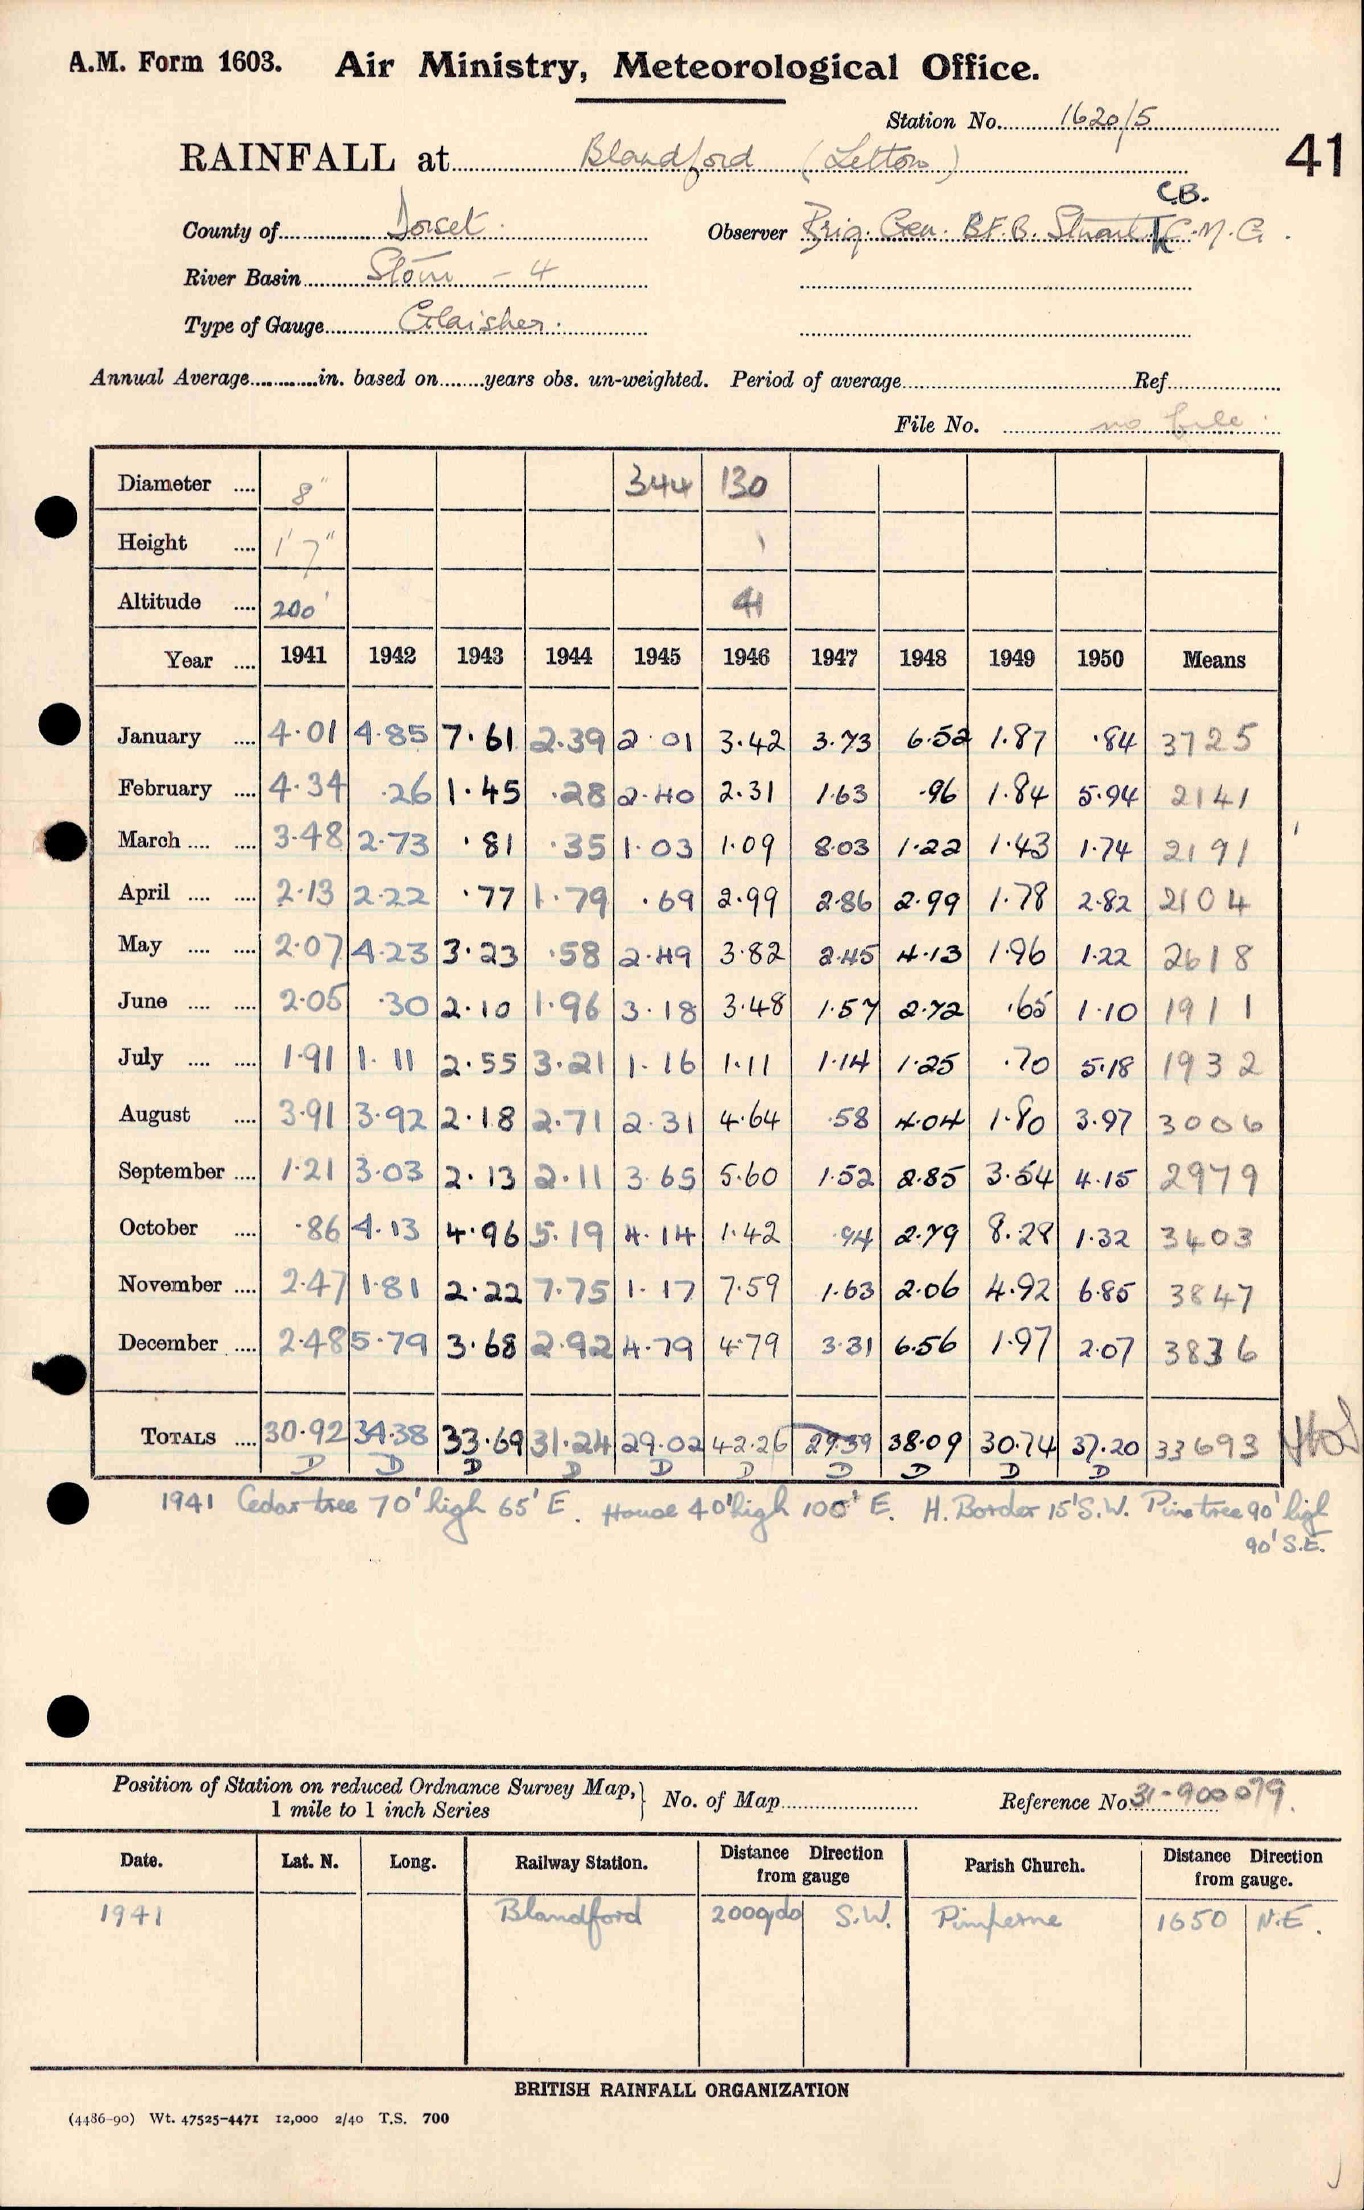 A.M. Form 1603. Air Ministry, Meteorological Office.
Station No. 1620/5
41
RAINFALL at Blandford (Letton)
C.B.
County of Dorset Observer Brig. Gen. B.F.B. Stuart C.M.G.
River Basin Stour - 4
Type of Gauge Glaisher.
Annual Average............in. based on........years obs. un-weighted. Period of average.................Ref.................
File No. no file.
Diameter .... 8" 344 130
Height .... 1' 7" 1
Altitude .... 200' 41
Year .... 1941 1942 1943 1944 1945 1946 1947 1948 1949 1950 Means
January .... 4.01 4.85 7.61 2.39 2.01 3.42 3.73 6.52 1.87 .84 3725
February .... 4.34 .26 1.45 .28 2.40 2.31 1.63 .96 1.84 5.94 2141
March .... .... 3.48 2.73 .81 .35 1.03 1.09 8.03 1.22 1.43 1.74 2191
April .... .... 2.13 2.22 .77 1.79 .69 2.99 2.86 2.99 1.78 2.82 2104
May .... .... 2.07 4.23 3.23 .58 2.49 3.82 2.45 4.13 1.96 1.22 2618
June .... .... 2.05 .30 2.10 1.96 3.18 3.48 1.57 2.72 .65 1.10 1911
July .... .... 1.91 1.11 2.55 3.21 1.16 1.11 1.14 1.25 .70 5.18 1932
August .... 3.91 3.92 2.18 2.71 2.31 4.64 .58 4.04 1.80 3.97 3006
September .... 1.21 3.03 2.13 2.11 3.65 5.60 1.52 2.85 3.54 4.15 2979
October .... .86 4.13 4.96 5.19 4.14 1.42 .94 2.79 8.28 1.32 3403
November .... 2.47 1.81 2.22 7.75 1.17 7.59 1.63 2.06 4.92 6.85 3847
December .... 2.48 5.79 3.68 2.92 4.79 4.79 3.31 6.56 1.97 2.07 3836
TOTALS .... 30.92 34.38 33.69 31.24 29.02 42.26 29.39 38.09 30.74 37.20 33693
D D D D D D D D D D
1941 Cedar tree 70' high 65' E. House 40' high 100' E. H. Border 15' S.W. Pine tree 90' high
90' S.E.
Position of Station on reduced Ordnance Survey Map, } No. of Map................ Reference No. 31-900079.
1 mile to 1 inch Series
Date. Lat. N. Long. Railway Station. Distance Direction from gauge Parish Church. Distance Direction from gauge.
1941 Blandford 200 yds S.W. Pimperne 1650 N.E.
BRITISH RAINFALL ORGANIZATION
(4486-90) Wt. 47525-4471 12,000 2/40 T.S. 700